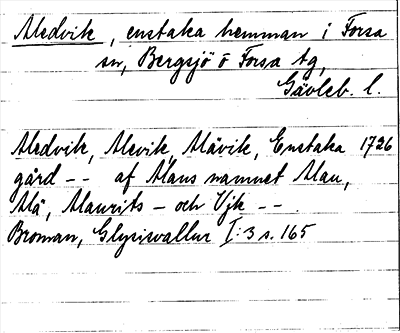 Aledvik, enstaka hemman i Forsa
sn, Bergsjö o Forsa tg,
Gävleb. l.
Aledvik, Alevik, Alåvik, Enstaka 1726
gård -- af Alaus namnet Alau,
Alå, Alaurits - och Vjk --.
Broman, Glysisvallur I:3 s. 165